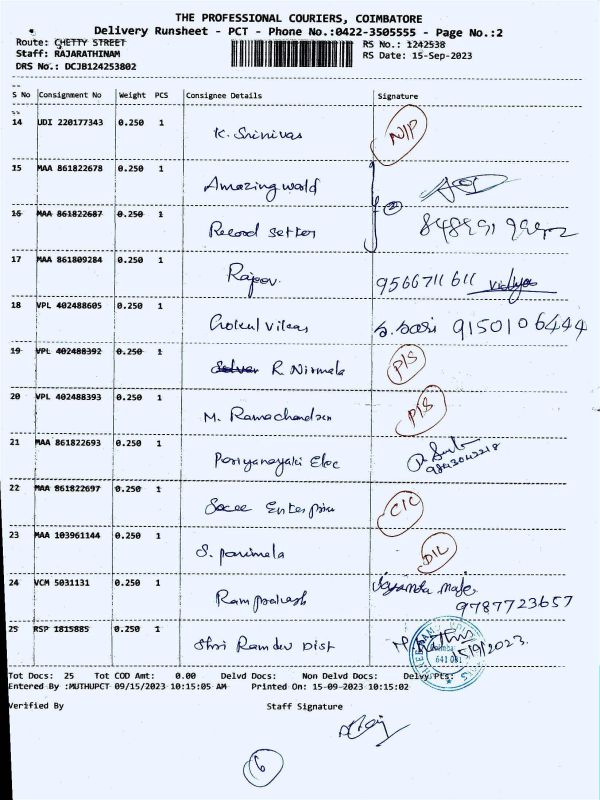 THE PROFESSIONAL COURIERS, COIMBATORE
Delivery Runsheet - PCT - Phone No.:0422-3505555 - Page No.:2
Route: CHETTY STREET RS No.: 1242538
Staff: RAJARATHINAM RS Date: 15-Sep-2023
DRS No.: DCJB124253802
S No Consignment No Weight PCS Consignee Details Signature
14 UDI 220177343 0.250 1 K. Srinivas N/P
15 MAA 861822678 0.250 1 Amazing world
16 MAA 861822687 0.250 1 Record setter 2
17 MAA 861809284 0.250 1 Rajeev. 9566711611 Vidya
18 VPL 402488605 0.250 1 Gokul Vilas S. Sasi 9150106444
19 VPL 402488392 0.250 1 R. Nirmala P/S
20 VPL 402488393 0.250 1 M. Ramachandran P/S
21 MAA 861822693 0.250 1 Periyanayaki Elec
22 MAA 861822697 0.250 1 Enterprise C/C
23 MAA 103961144 0.250 1 S. Parimala D/L
24 VCM 5031131 0.250 1 Ram prakash 9787723657
25 RSP 1815885 0.250 1 Shri Ramdev Dist 15/9/2023.
641 001
Tot Docs: 25 Tot COD Amt: 0.00 Delvd Docs: Non Delvd Docs: Delvy Pts:
Entered By :MUTHUPCT 09/15/2023 10:15:05 AM Printed On: 15-09-2023 10:15:02
Verified By Staff Signature
6